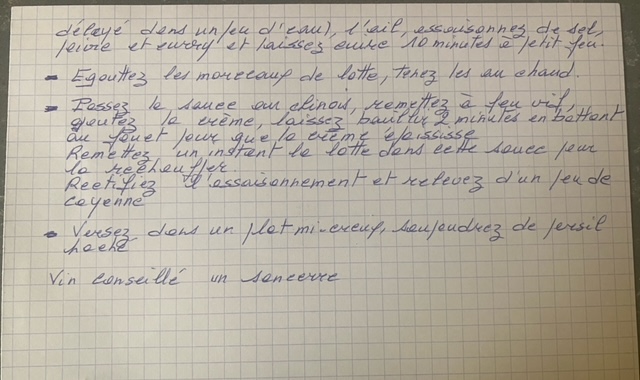 délayé dans un peu d'eau), l'ail, assaisonnez de sel,
poivre et curry et laissez cuire 10 minutes à petit feu.
- Egouttez les morceaux de lotte, tenez les au chaud.
- Passez la sauce au chinois, remettez à feu vif,
ajoutez la crème, laissez bouillir 2 minutes en battant
au fouet pour que la crème épaississe
Remettez un instant la lotte dans cette sauce pour
la réchauffer.
Rectifiez l'assaisonnement et relevez d'un peu de
cayenne
- Versez dans un plat mi-creux, saupoudrez de persil
haché
Vin conseillé un sancerre